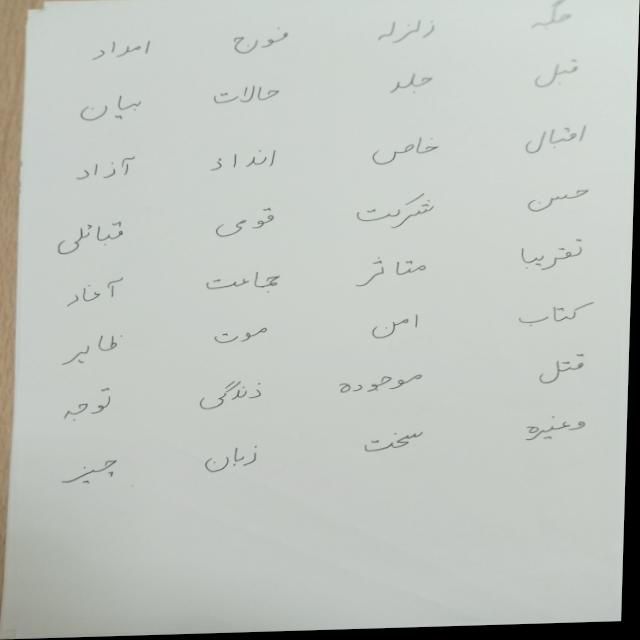 جگہ زلزلہ فوج امداد
قبل جلد حالات بیان
اقبال خاص انداز آزاد
حسن شرکت قومی قبائلی
تقریبا متاثر جماعت آغاز
کتاب امن موت ظاہر
قتل موجودہ زندگی توجہ
وغیرہ سخت زبان چیز